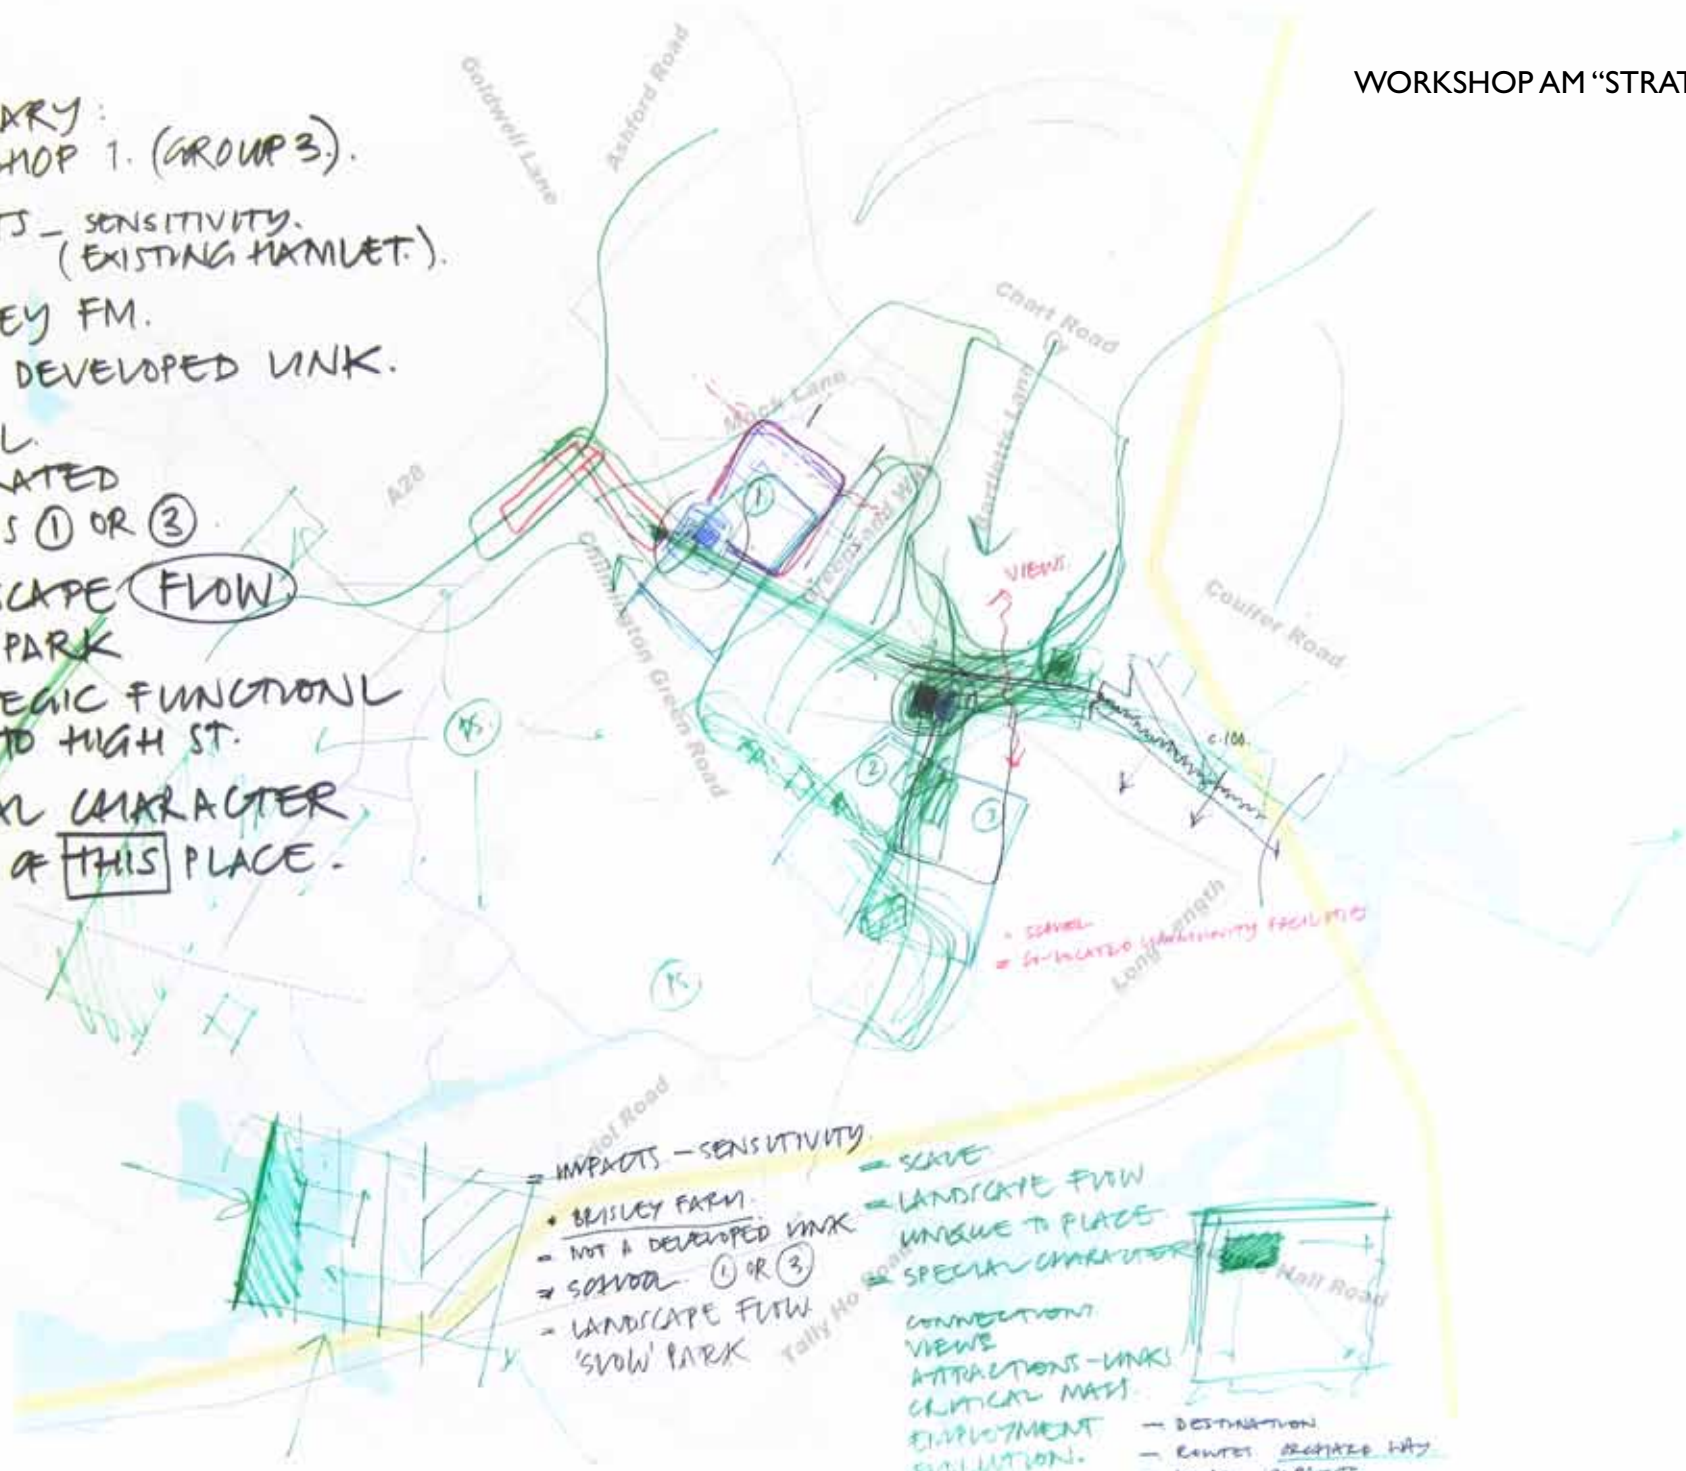 WORKSHOP AM “STRAT
ARY:
HOP 1. (GROUP 3).
TS – SENSITIVITY.
(EXISTING HAMLET.).
EY FM.
DEVELOPED LINK.
L.
ATED
S ① OR ③.
SCAPE FLOW
PARK
EGIC FUNCTIONL
TO HIGH ST.
AL CHARACTER
OF THIS PLACE.
Goldwell Lane
Ashford Road
Chart Road
Mock Lane
Bartletts Lane
A28
①
Chilmington Green Road
VIEWS.
Coulter Road
②
③
c.100.
PS
Long Length
CO-LOCATED COMMUNITY FACILITIES
= IMPACTS – SENSITIVITY.
• BRISLEY FARM.
– NOT A DEVELOPED LINK
= SCHOOL. ① OR ③
– LANDSCAPE FLOW
'SLOW' PARK
Tally Ho Road
= SCALE
= LANDSCAPE FLOW
UNIQUE TO PLACE
= SPECIAL CHARACTER
Hall Road
CONNECTIONS
VIEWS
ATTRACTIONS – LINKS
CRITICAL MASS.
EMPLOYMENT
EVOLUTION.
– DESTINATION
– ROUTES ORCHARD WAY